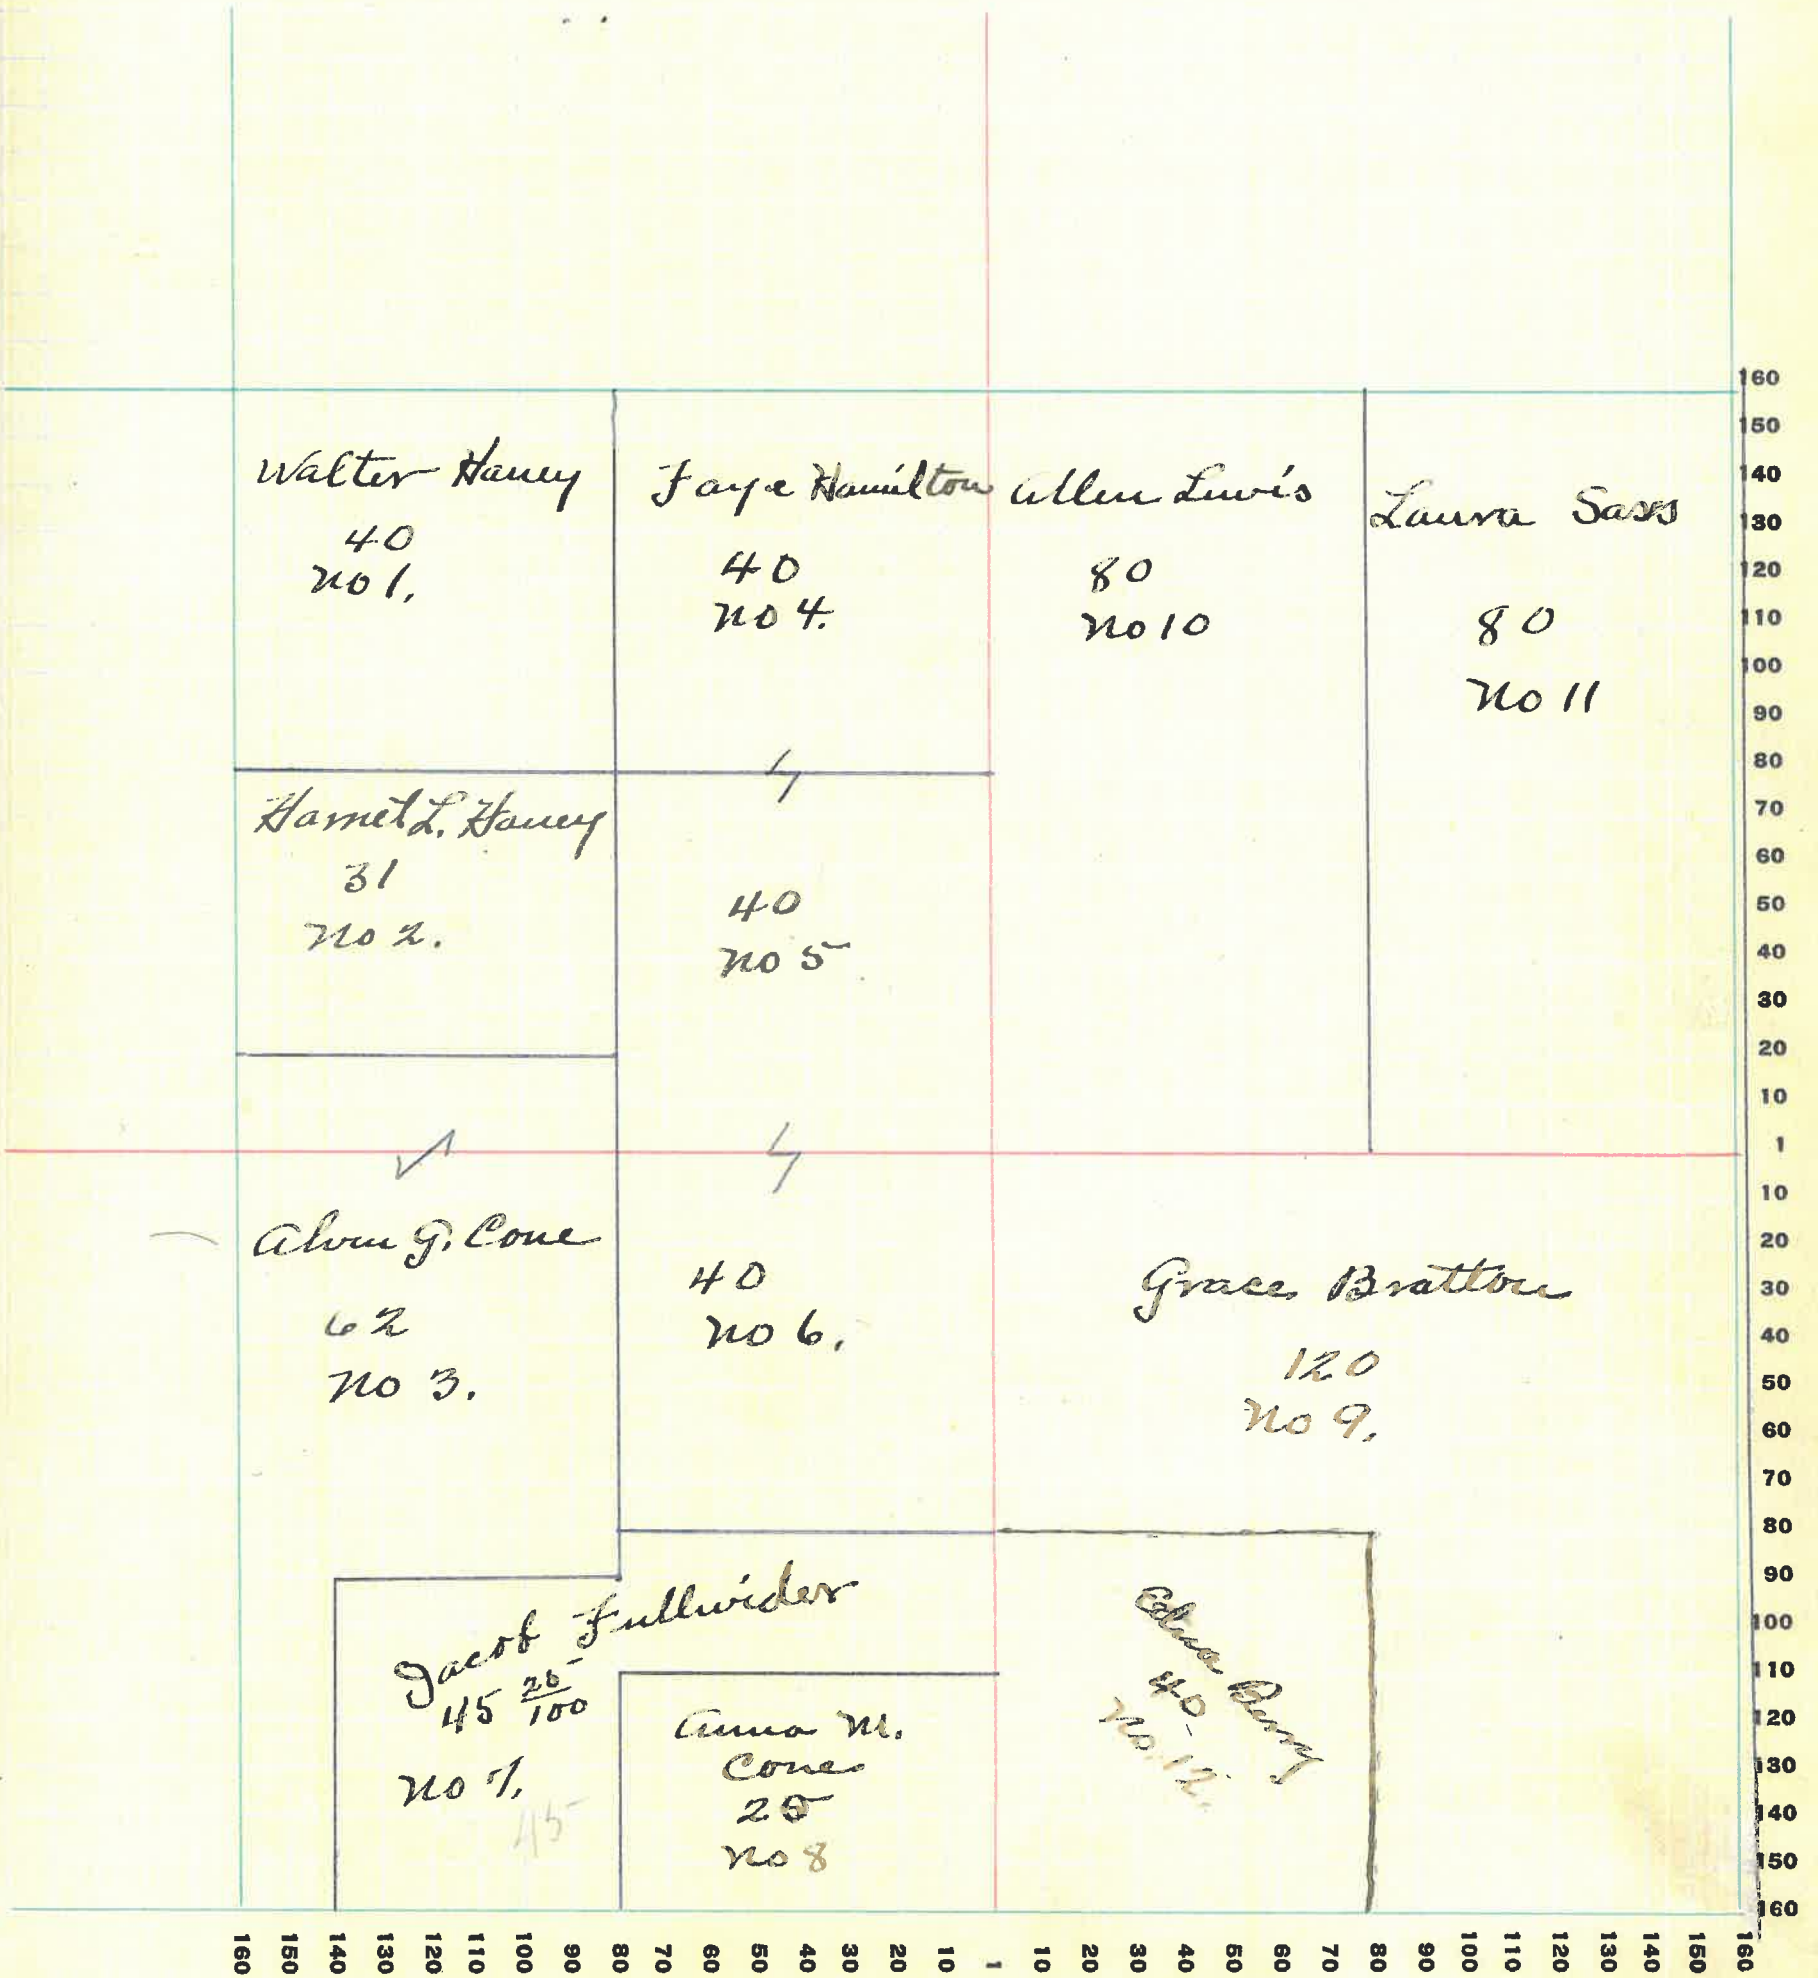 Walter Haney
40
No 1.
Faye Hamilton
40
No 4.
Allen Lewis
80
No 10
Laura Sass
80
No 11
Harriet L. Haney
31
No 2.
40
No 5
Alvin G. Cone
62
No 3.
40
No 6.
Grace Bratton
120
No 9.
Jacob Fullwider
45 25/100
No 7.
45
Anna M.
Cone
25
No 8
Edna Berry
40
No. 12.
160
150
140
130
120
110
100
90
80
70
60
50
40
30
20
10
1
10
20
30
40
50
60
70
80
90
100
110
120
130
140
150
160
160 150 140 130 120 110 100 90 80 70 60 50 40 30 20 10 1 10 20 30 40 50 60 70 80 90 100 110 120 130 140 150 160